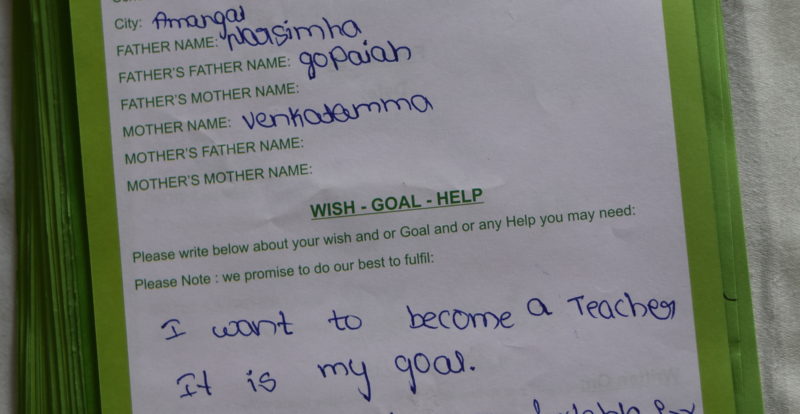 City: Amangal
FATHER NAME: Narsimha
FATHER'S FATHER NAME: gopaiah
FATHER'S MOTHER NAME:
MOTHER NAME: Venkatamma
MOTHER'S FATHER NAME:
MOTHER'S MOTHER NAME:
WISH - GOAL - HELP
Please write below about your wish and or Goal and or any Help you may need:
Please Note : we promise to do our best to fulfil:
I want to become a Teacher
It is my goal.